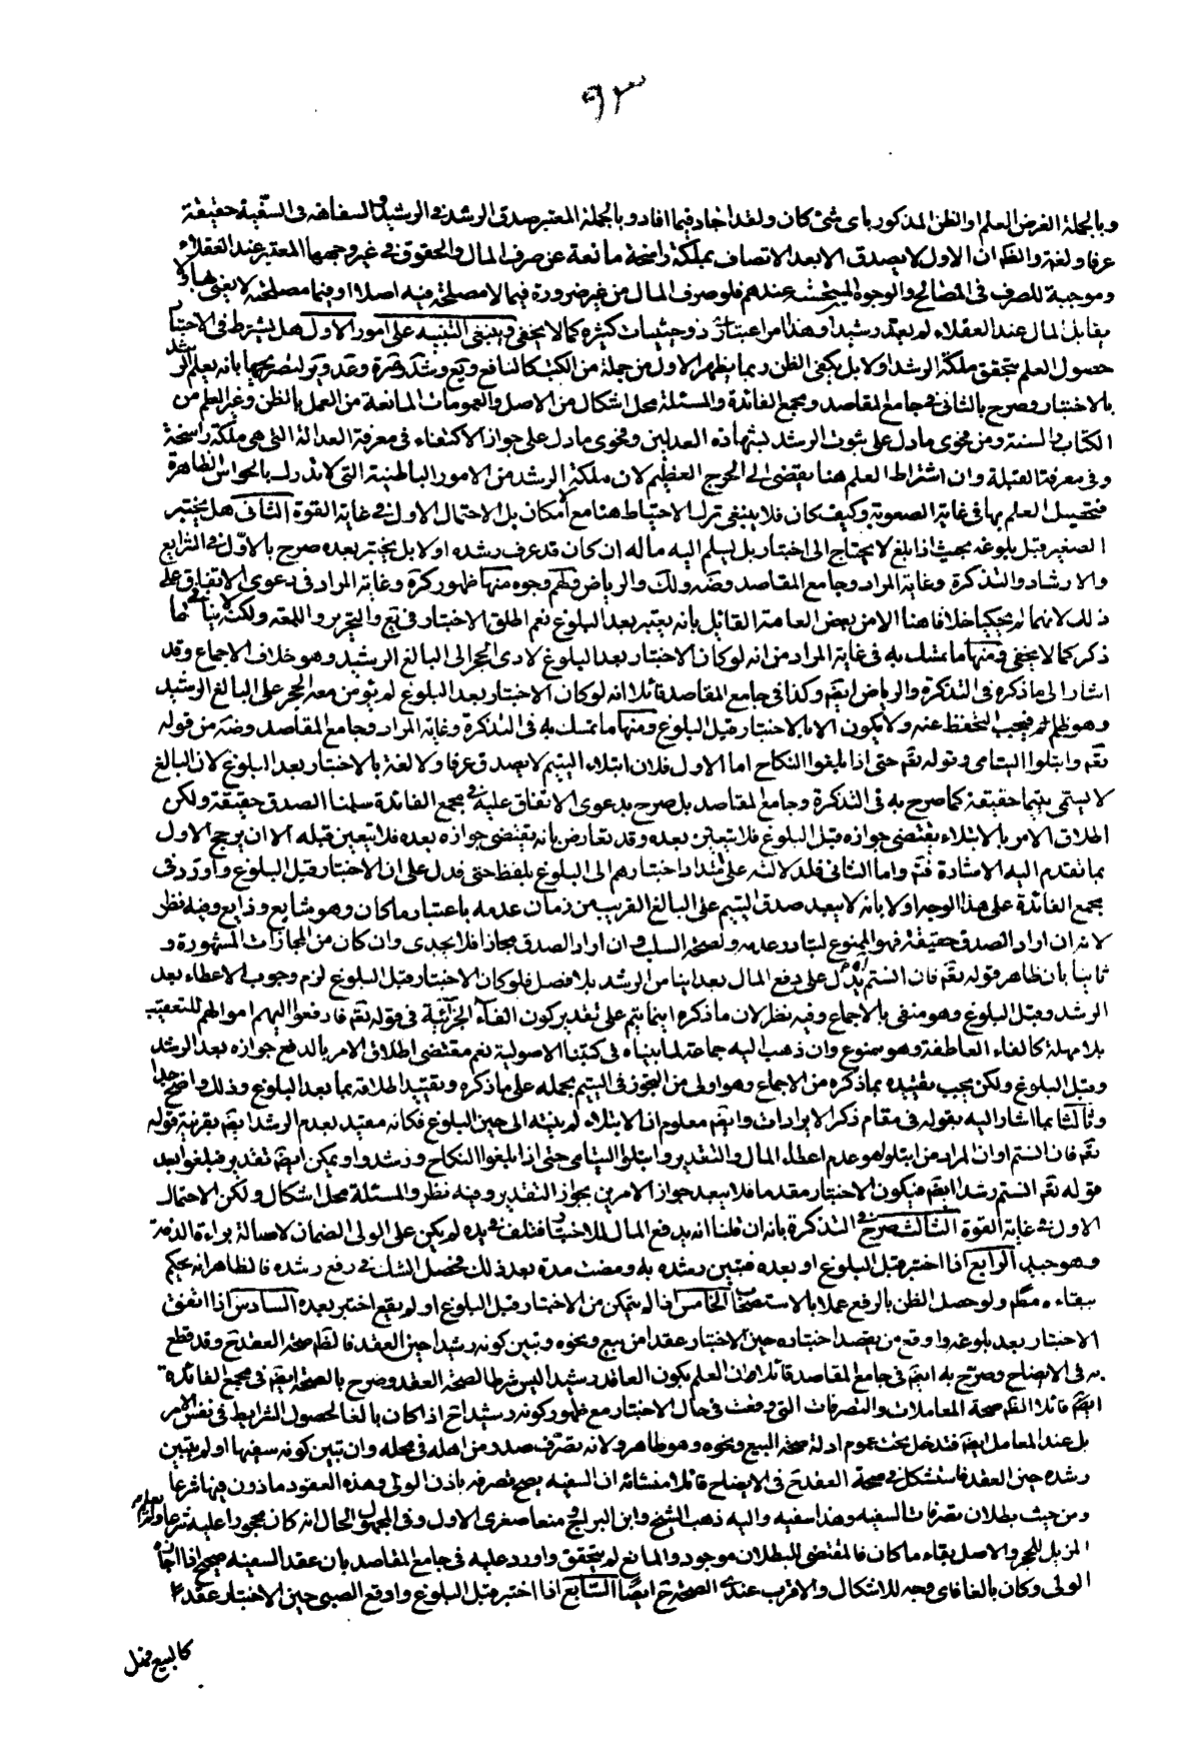 ٩٣
وبالجملة الغرض العلم والظن المذكور باى شئ كان ولقد اجاد فيما افاد وبالجملة المعتبر صدق الرشد فى الرشيد والسفاهة فى السفيه حقيقة
عرفا ولغة والظ ان الاول لا يصدق الا بعد الاتصاف بملكة راسخة مانعة عن صرف المال والحقوق فى غير وجهها المعتبر عند العقلاء
وموجبة للصرف فى المصالح والوجوه عندهم فلو صرف المال من غير ضرورة فيما لا مصلحة فيه اصلا او فيما مصلحة لا يعنى بها ولا
يقابل المال عند العقلاء لم يعد رشيدا وهذا امر اعتبارى ذو حيثيات كثيرة كما لا يخفى وينبغى التنبيه على امور الاول هل يشترط فى الاختبار
حصول العلم بتحقق ملكة الرشد او لا بل يكفى الظن ربما يظهر الاول من جملة من الكتب كالنافع ويع وشد وكرة وعد وير لتصريحها بانه يعلم الرشد
بالاختبار وصرح بالثانى فى جامع المقاصد ومجمع الفائدة والمسئلة محل اشكال من الاصل والعمومات المانعة من العمل بالظن وغير العلم من
الكتاب والسنة ومن فحوى ما دل على ثبوت الرشد بشهادة العدلين وفحوى ما دل على جواز الاكتفاء فى معرفة العدالة التى هى ملكة راسخة
وفى معرفة القبلة وان اشتراط العلم هنا يقتضى الى الحرج العظيم لان ملكة الرشد من الامور الباطنية التى لا تدرك بالحواس الظاهرة
فتحصيل العلم بها فى غاية الصعوبة وكيف كان فلا ينبغى ترك الاحتياط هنا مع الامكان بل الاحتمال الاول فى غاية القوة الثانى هل يختبر
الصغير قبل بلوغه بحيث اذا بلغ لا يحتاج الى اختبار بل يسلم اليه ماله ان كان قد عرف رشده او لا بل يختبر بعده صرح بالاول فى الشرايع
والارشاد والتذكرة وغاية المراد وجامع المقاصد وضه ولك والرياض ولهم وجوه منها ظهور كرة وغاية المراد فى دعوى الاتفاق على
ذلك لانهما لم يحكيا خلافا هنا الا من بعض العامة القائل بانه يعتبر بعد البلوغ نعم اطلق الاختبار فى يع والتحرير واللمعة ولكنه لا ينافى ما
ذكر كما لا يخفى ومنها ما تمسك به فى غاية المراد من انه لو كان الاختبار بعد البلوغ لادى الحجر الى البالغ الرشيد وهو خلاف الاجماع وقد
اشار الى ما ذكره فى التذكرة والرياض ايضم وكذا فى جامع المقاصد قائلا انه لو كان الاختبار بعد البلوغ لم يؤمن معه الحجر على البالغ الرشيد
وهو ظلم فيجب التحفظ عنه ولا يكون الا بالاختبار قبل البلوغ ومنها ما تمسك به فى التذكرة وغاية المراد وجامع المقاصد وضه من قوله
تعم وابتلوا اليتامى وقوله تعم حتى اذا بلغوا النكاح اما الاول فلان ابتلاء اليتيم لا يصدق عرفا ولا لغة بالاختبار بعد البلوغ لان البالغ
لا يسمى يتيما حقيقة كما صرح به فى التذكرة وجامع المقاصد بل صرح بدعوى الاتفاق عليه فى مجمع الفائدة سلمنا الصدق حقيقة ولكن
اطلاق الامر بالابتلاء يقتضى جوازه قبل البلوغ فلا يتعين بعده وقد تعارض بانه يقتضى جوازه بعده فلا يتعين قبله الا ان يرجح الاول
بما تقدم اليه الاشارة فتم واما الثانى فلدلالته على امتداد اختبارهم الى البلوغ بلفظ حتى فدل على ان الاختبار قبل البلوغ واورد فى
مجمع الفائدة على هذا الوجه اولا بانه لا يبعد صدق اليتيم على البالغ القريب من زمان عدمه باعتبار ما كان وهو شايع وذايع وفيه نظر
لانه ان اراد الصدق حقيقة فهو الممنوع لتبادر عدمه ولصحة السلب وان اراد الصدق مجازا فلا يجدى وان كان من المجازات المشهورة و
ثانيا بان ظاهر قوله تعم فان انستم يدل على دفع المال بعد ايناس الرشد بلا فصل فلو كان الاختبار قبل البلوغ لزم وجوب الاعطاء بعد
الرشد وقبل البلوغ وهو منفى بالاجماع وفيه نظر لان ما ذكره انما يتم على تقدير كون الفاء الجزائية فى قوله تعم فادفعوا اليهم اموالهم للتعقيب
بلا مهلة كالفاء العاطفة وهو ممنوع وان ذهب اليه جماعة لما بيناه فى كتبنا الاصولية نعم مقتضى اطلاق الامر بالدفع جوازه بعد الرشد
وقبل البلوغ ولكن يجب تقييده بما ذكره من الاجماع وهو اولى من التجوز فى اليتيم بحمله على ما ذكره وتقييد اطلاقه بما بعد البلوغ وذلك واضح جدا
وثالثا بما اشار اليه بقوله فى مقام ذكر الايرادات وايضم معلوم ان الابتلاء لم ينته الى حين البلوغ فكانه مقيد بعدم الرشد ايضم بقرينة قوله
تعم فان انستم او ان المراد من ابتلوا هو عدم اعطاء المال والتقدير وابتلوا اليتامى حتى اذا بلغوا النكاح ورشدوا ويمكن ايضم تقدير فبلغوا بعد
قوله تعم انستم رشدا ايضم فيكون الاختبار مقدما فلا يبعد جواز الامرين بجواز التقدير وفيه نظر والمسئلة محل اشكال ولكن الاحتمال
الاول فى غاية القوة الثالث صرح فى التذكرة بانه ان قلنا انه يدفع المال للاختبار فتلف فى يده لم يكن على الولى الضمان لاصالة براءة الذمة
وهو جيد الرابع اذا اختبر قبل البلوغ او بعده فتبين رشده به ومضت مدة بعد ذلك فحصل الشك فى رفع رشده فالظاهر انه يحكم
ببقاءه مطلقا ولو حصل الظن بالرفع عملا بالاستصحاب الخامس اذا لم يتمكن من الاختبار قبل البلوغ او لم يقع اختبر بعده السادس اذا اتفق
الاختبار بعد بلوغه واوقع من يقصد اختباره حين الاختبار عقدا من بيع ونحوه وتبين كونه رشيدا حين العقد فالظ صحة العقد ح وقد قطع
به فى الايضاح وصرح به ايضم فى جامع المقاصد قائلا ان العلم بكون العاقد رشيدا ليس شرطا لصحة العقد وصرح بالصحة ايضم فى مجمع الفائدة
ايضم قائلا الظ صحة المعاملات والتصرفات التى وقعت فى حال الاختبار مع ظهور كونه رشيدا ح اذا كان بالغا لحصول الشرايط فى نفس الامر
بل عند المعامل ايضم فتدخل تحت عموم ادلة صحة البيع ونحوه وهو ظاهر ولانه تصرف صدر من اهله فى محله وان تبين كونه سفيها او لم يتبين
رشده حين العقد فاستشكل فى صحة العقد ح فى الايضاح قائلا منشائه ان السفيه يصح تصرفه باذن الولى وهذه العقود ماذون فيها شرعا
ومن حيث بطلان تصرفات السفيه وهذا سفيه واليه ذهب الشيخ وابن البراج منعا صغرى الاول وفى المجهول الحال انه كان محجورا عليه شرعا ولم يعلم
المزيل للحجر والاصل بقاء ما كان فالمقتضى للبطلان موجود والمانع لم يتحقق واورد عليه فى جامع المقاصد بان عقد السفيه صحيح اذا اجازه
الولى وكان بالغا فاى وجه للاشكال والاقرب عندى الصحة ح ايضا السابع اذا اختبر قبل البلوغ واوقع الصبى حين الاختبار عقدا
كالبيع فهل